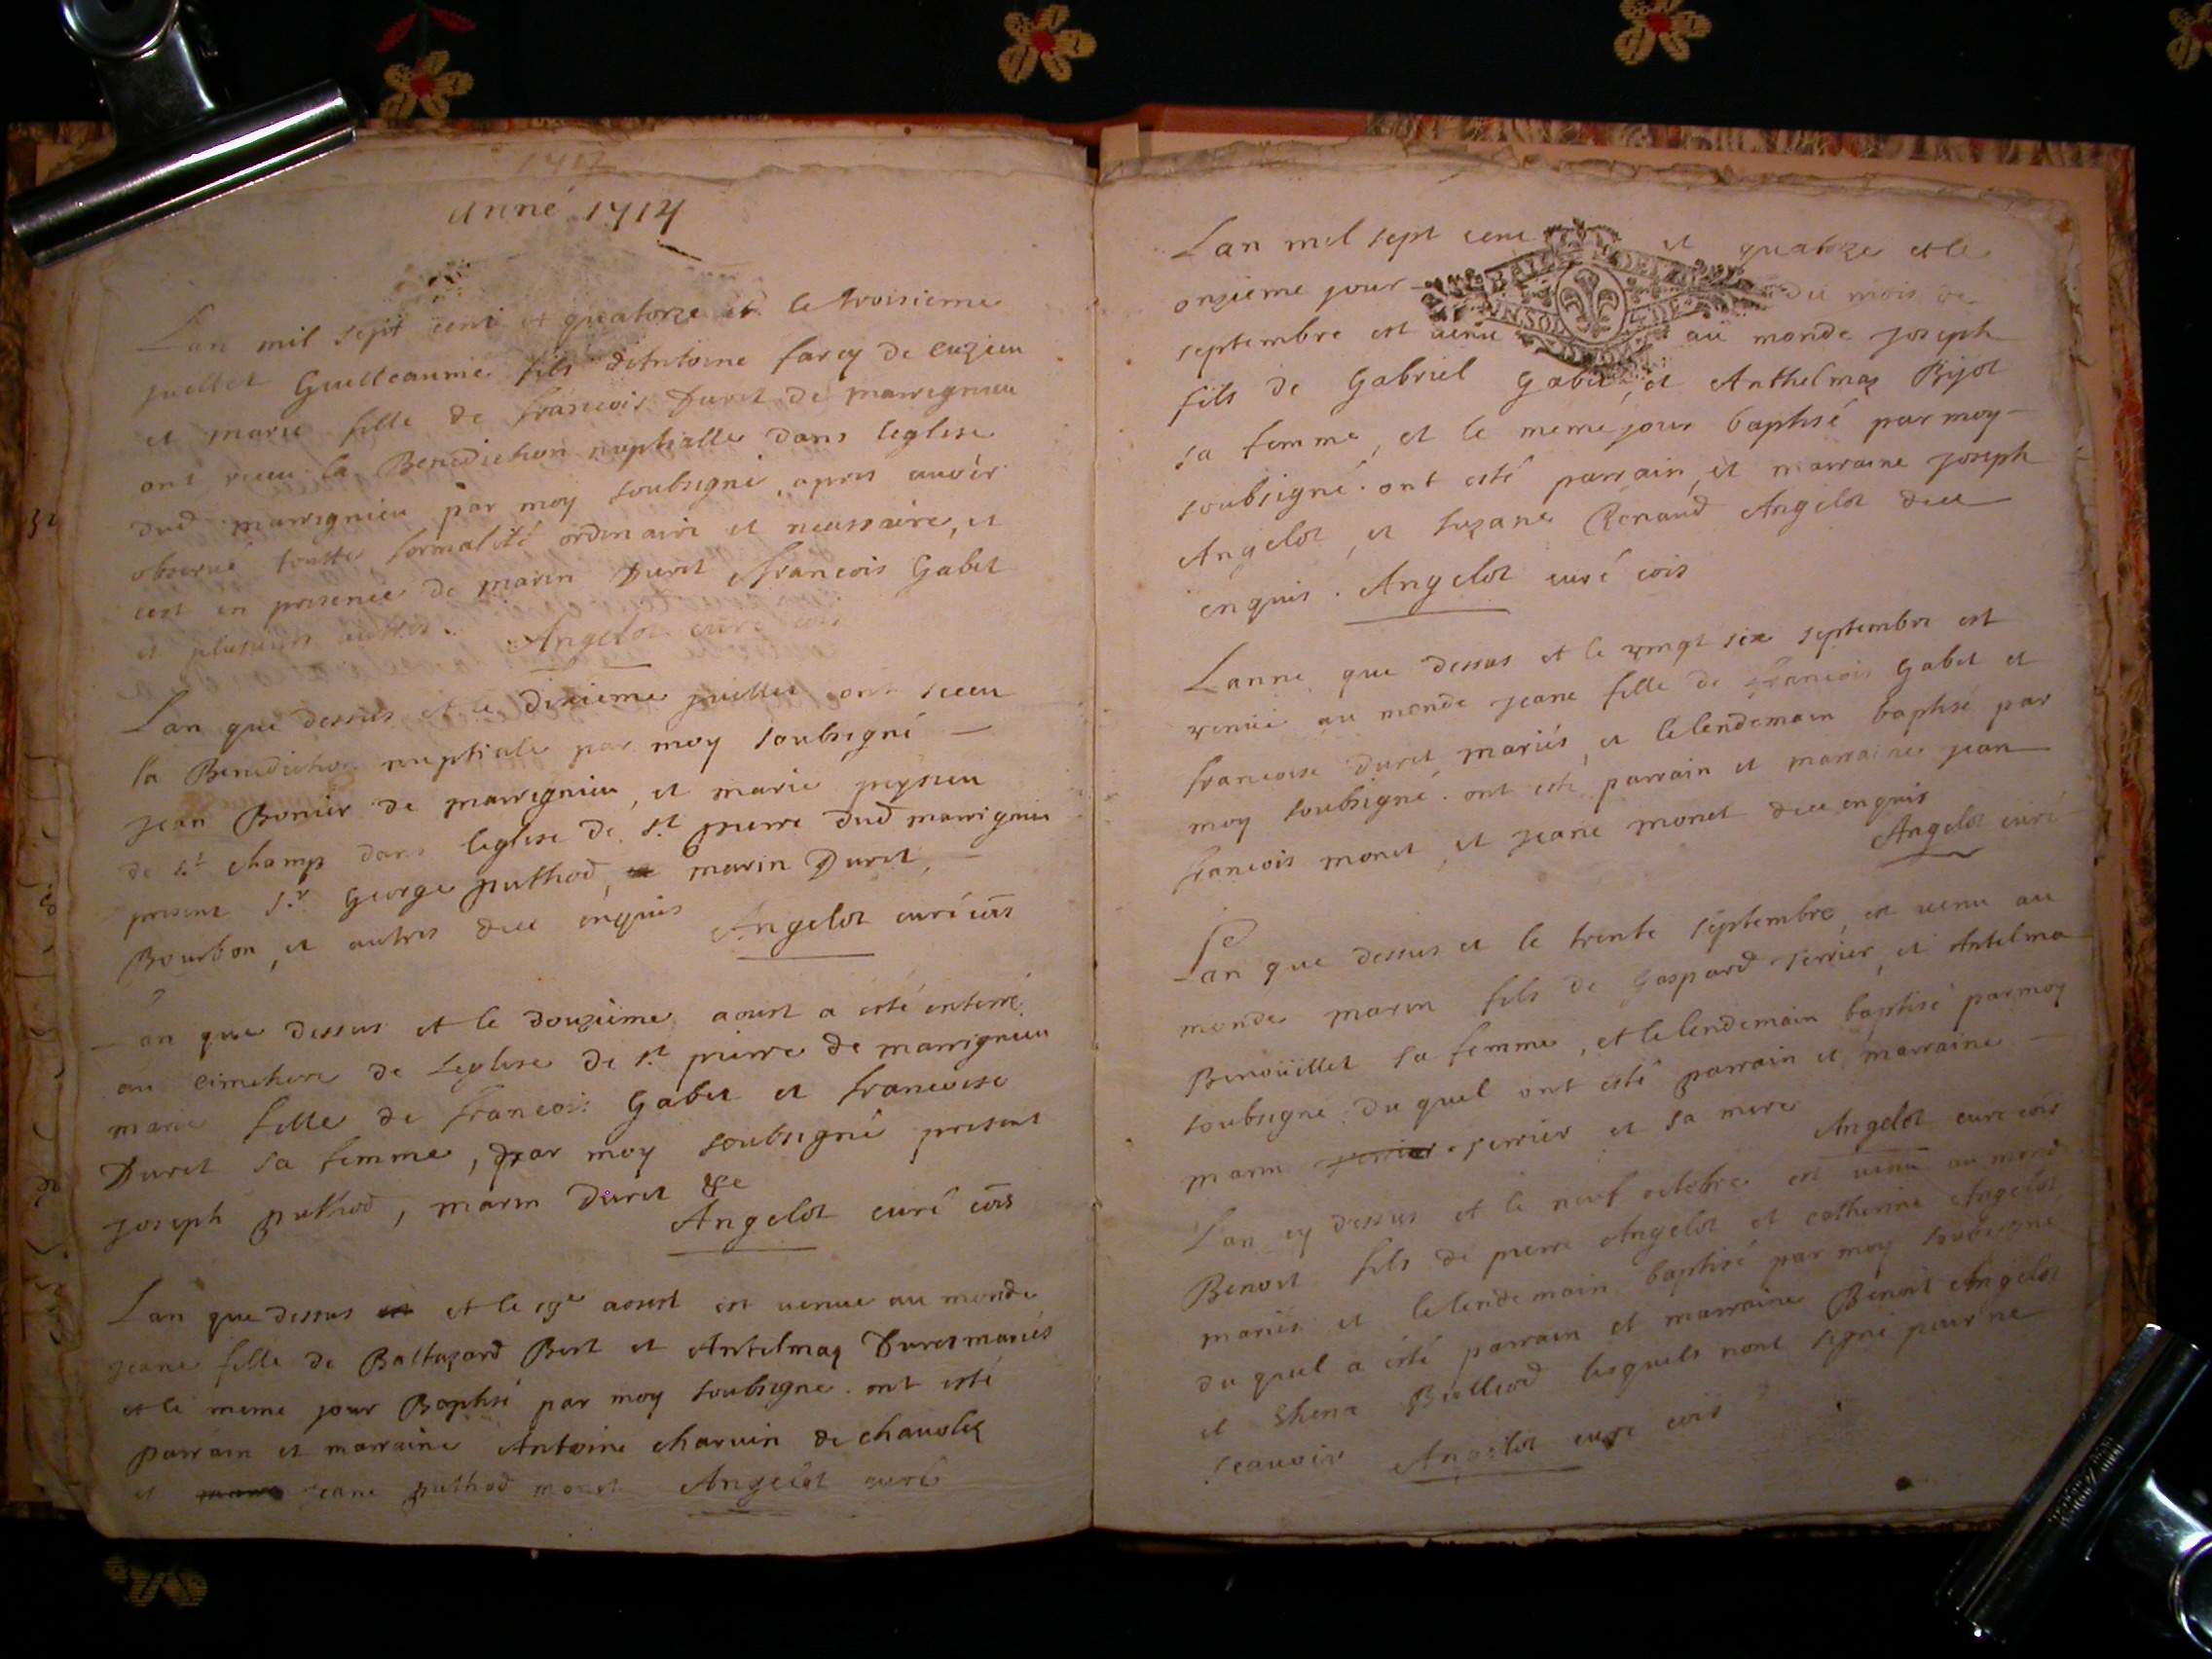 1714
anné 1714
Lan mil sept cent et quatorze et le troisieme
juillet Guilleaume fils dAntoine farcy de cuzieu
et marie fille de francois Duret de marrignieu
ont receu la Benediction nuptialle dans leglise
dud marrignieu par moy soubsigné apres avoir
observé toutte formalité ordinaire et necessaire, et
cest en presence de marin Duret francois Gabet
et plusieurs autres. Angelot curé cois
Lan que dessus et le dixieme juillet ont receu
la Benediction nuptiale par moy soubsigné
Jean Bonier de marrignieu, et marie
de st champ dans leglise de st pierre dud marrignieu
present sr George puthod, marin Duret,
Bourbon, et autres enquis Angelot curé cois
an que dessus et le douzieme aoust a esté enterré
au cimetiere de Leglise de st pierre de marrignieu
marie fille de francois Gabet et francoise
Duret sa femme, par moy soubsigné present
Joseph puthod, marin Duret &c
Angelot curé cois
Lan que dessus et le aoust est venue au monde
Jeane fille de Baltazard Bert et Antelmaz Duret mariés
et le meme jour Baptisé par moy soubsigne. ont esté
parrain et marraine Antoine charvin de chavolez
et jeane puthod Angelot curé
Lan mil sept cent et quatorze et le
onzieme jour du mois de
septembre est venu au monde Joseph
fils de Gabriel Gabet, et Anthelmaz Bijot
sa femme, et le meme jour baptisé par moy
soubsigné. ont esté parrain et marraine joseph
Angelot, et suzane Renaud Angelot
enquis. Angelot curé cois
Lanne que dessus et le vingt six septembre est
venue au monde Jeane fille de francois Gabet et
francoise Duret mariés, et lelendemain baptisé par
moy soubsigné. ont esté parrain et marraine jean
francois monet, et Jeane monet enquis
Angelot curé
Lan que dessus et le trente septembre est venu au
monde marin fils de Gaspard serrier, et Antelma
Benoüillet sa femme, et lelendemain baptisé par moy
soubsigné. du quel ont esté parrain et marraine
marin serrier et sa mere Angelot curé cois
Lan cy dessus et le neuf octobre est venu au monde
Benoit fils de pierre Angelot et catherine Angelot
mariés et lelendemain baptisé par moy soubsigné
du quel a esté parrain et marraine Benoit Angelot
et lesquels nont signé pour ne
scavoir Angelot curé cois